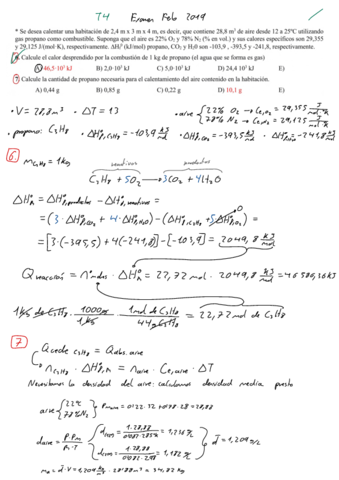 T4 Examen Feb 2019
* Se desea calentar una habitación de 2,4 m x 3 m x 4 m, es decir, que contiene 28,8 m³ de aire desde 12 a 25°C utilizando
gas propano como combustible. Suponga que el aire es 22% O₂ y 78% N₂ (% en vol.) y sus calores específicos son 29,355
y 29,125 J/(mol·K), respectivamente. ΔHf⁰ (kJ/mol) propano, CO₂ y H₂O son -103,9 , -393,5 y -241,8, respectivamente.
6. Calcule el calor desprendido por la combustión de 1 kg de propano (el agua que se forma es gas)
A) 46,5·10³ kJ B) 2,0·10³ kJ C) 5,0·10³ kJ D) 24,4·10³ kJ E)
7. Calcule la cantidad de propano necesaria para el calentamiento del aire contenido en la habitación.
A) 0,44 g B) 0,85 g C) 0,22 g D) 10,1 g E)
• V = 28,8 m³ • ΔT = 13 • aire { 22% O₂ → Ce,O₂ = 29,355 J/mol·K
78% N₂ → Ce,N₂ = 29,125 J/mol·K
• propano: C₃H₈ • ΔH⁰f,C₃H₈ = -103,9 kJ/mol • ΔH⁰f,CO₂ = -393,5 kJ/mol • ΔH⁰f,H₂O = -241,8 kJ/mol
6 mC₃H₈ = 1 kg
reactivos productos
C₃H₈ + 5O₂ → 3CO₂ + 4H₂O
ΔH⁰R = ΔH⁰productos - ΔH⁰reactivos =
= (3 · ΔH⁰f,CO₂ + 4 · ΔH⁰f,H₂O) - (ΔH⁰f,C₃H₈ + 5ΔH⁰f,O₂) =
0
= [3·(-395,5) + 4(-241,8)] - [-103,9] = 2049,8 kJ/mol
Qreacción = n⁰ moles · ΔH⁰R = 22,72 mol · 2049,8 kJ/mol =
1 kg de C₃H₈ · 1000g/1 kg · 1 mol de C₃H₈/44g C₃H₈ = 22,72 mol de C₃H₈
7 Qcede C₃H₈ = Qabs. aire
nC₃H₈ · ΔH⁰R = naire · Ce,aire · ΔT
Necesitamos la densidad del aire: calculamos densidad media puesto
aire { 22% 78% N₂ } Pmaire = 0'22·32 + 0'78·28 = 28,88
daire = P·Pm/R·T { d = 1·28,88/0'082·285 = 1,236 g/l
d = 1·28,88/0'082·298 = 1,182 g/l } d = 1,209 g/l
ma = d·V = 1,209 kg/m³ · 28'8 m³ = 34,82 kg